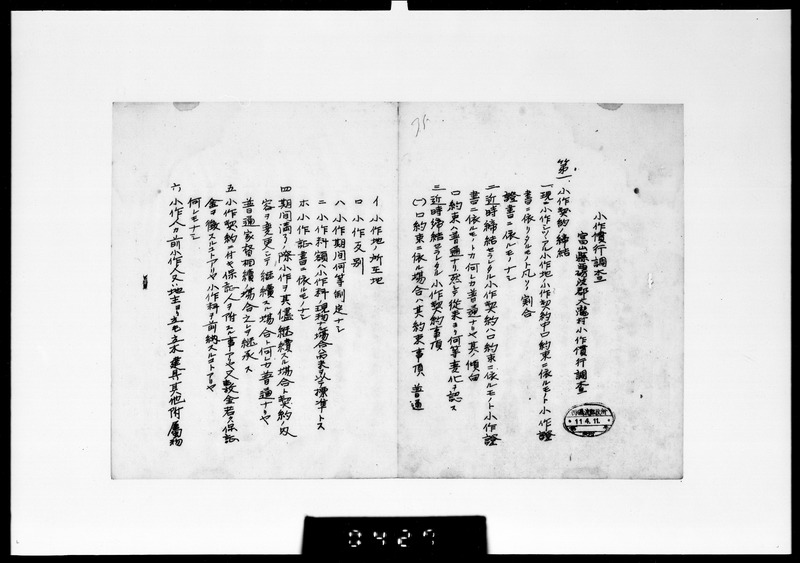 小作慣行調査
富山縣西礪波郡大瀧村小作慣行調査
第一、小作契約ノ締結
一 現ニ小作シツヽアル小作地小作契約中口約束ニ依ルモノト小作證
書ニ依リタルモノト凡ソノ割合
證書ニ依ルモノナシ
二 近時締結セラレタル小作契約ハ口約束ニ依ルモノト小作證
書ニ依ルモノトカ何レカ普通ナリヤ其ノ傾向
口約束ハ普通ナリ然シ從來ヨリ何等変化ヲ認メス
三 近時締結セラレタル小作契約事項
(一)口約束ニ依ル場合ハ其約束事項 普通
イ 小作地ノ所在地
ロ 小作反別
ハ 小作期間何等制定ナシ
ニ 小作料額ハ小作料ノ現物ナル場合
ホ 小作証書ニ依ルモノナシ
四 期間満了ノ際小作ヲ其儘継續スル場合ト契約ノ内
容ヲ変更シテ継續スル場合ト何レカ普通ナリヤ
普通家督相續ノ場合之レヲ継承ス
五 小作契約ニ付キ保証人ヲ附スル事アリヤ又敷金若クハ保証
金ヲ徴スルコトアリヤ小作料ヲ前納スルコトアリヤ
何レモナシ
六 小作人カ前小作人又ハ地主ヨリ立毛立木建具其他附属物
25
11.4.11.
0427